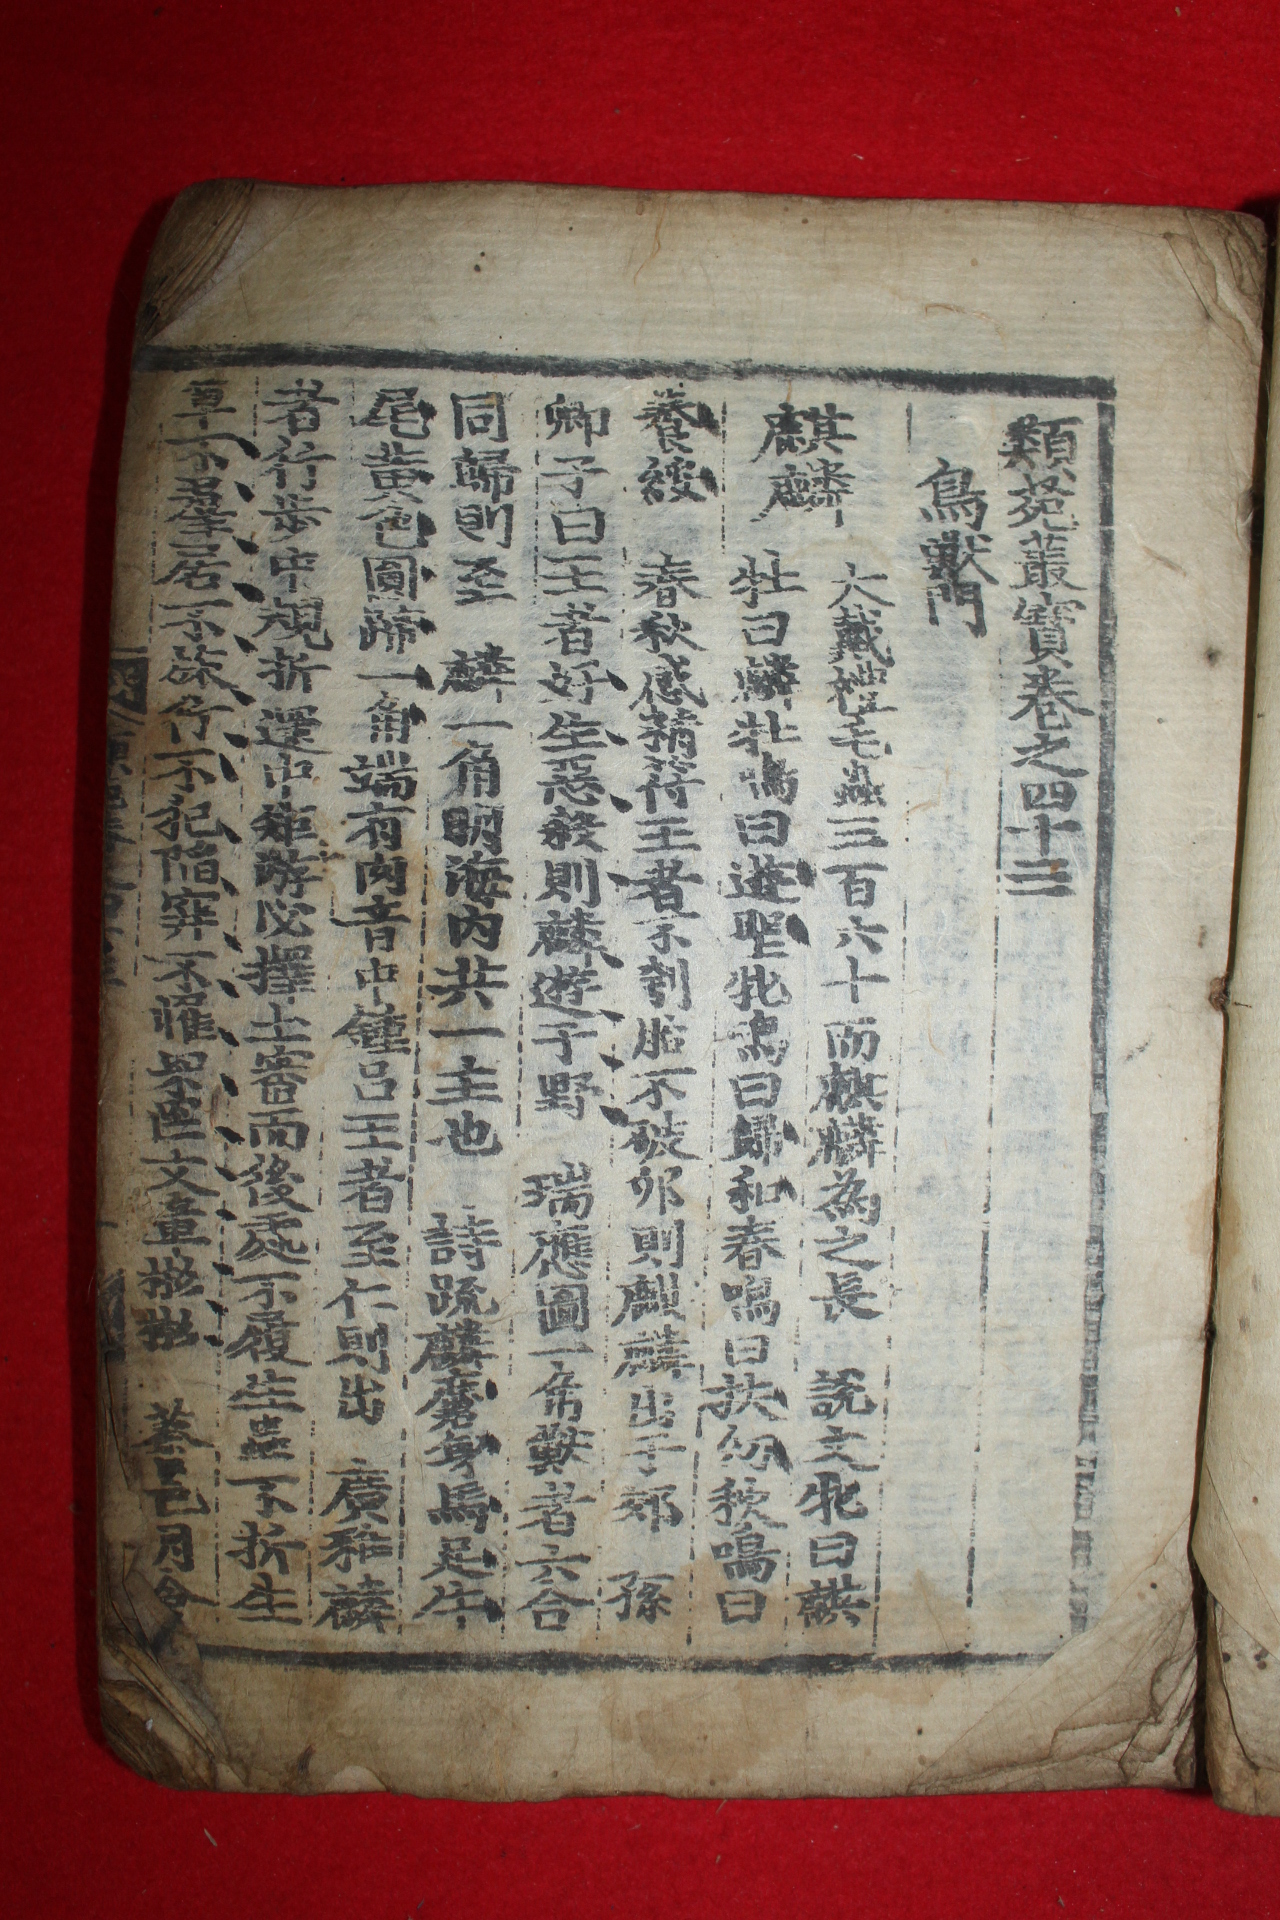 類苑叢寶卷之四十三
鳥獸門
麒麟 大戴禮毛蟲三百六十而麒麟為之長 說文牝曰麒
牡曰麟牡鳴曰遊聖牝鳴曰歸和春鳴曰扶幼秋鳴曰
養綏 春秋感精符王者不刳胎不破卵則麒麟出于郊 孫
卿子曰王者好生惡殺則麟遊于野 瑞應圖一角獸者六合
同歸則至 麟一角明海內共一主也 詩疏麟麕身馬足牛
尾黃色圓蹄一角端有肉音中鐘呂王者至仁則出 廣雅麟
者行步中規折還中矩游必擇土審而後處不履生蟲不折生
草不羣居不旅行不犯陷穽不罹罘罔文章彬彬 蔡邕月令